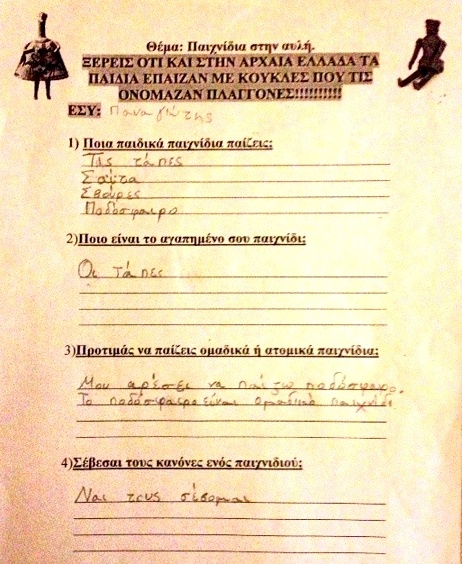 Θέμα: Παιχνίδια στην αυλή.
ΞΕΡΕΙΣ ΟΤΙ ΚΑΙ ΣΤΗΝ ΑΡΧΑΙΑ ΕΛΛΑΔΑ ΤΑ
ΠΑΙΔΙΑ ΕΠΑΙΖΑΝ ΜΕ ΚΟΥΚΛΕΣ ΠΟΥ ΤΙΣ
ΟΝΟΜΑΖΑΝ ΠΛΑΓΓΟΝΕΣ!!!!!!!!!!
ΕΣΥ: Παναγιώτης
1) Ποια παιδικά παιχνίδια παίζεις;
Τις τάπες
Σούτα
Σβούρες
Ποδόσφαιρο
2)Ποιο είναι το αγαπημένο σου παιχνίδι;
Οι τάπες
3)Προτιμάς να παίζεις ομαδικά ή ατομικά παιχνίδια;
Μου αρέσει να παίζω ποδόσφαιρο.
Το ποδόσφαιρο είναι ομαδικό παιχνίδι
4)Σέβεσαι τους κανόνες ενός παιχνιδιού;
Ναι τους σέβομαι